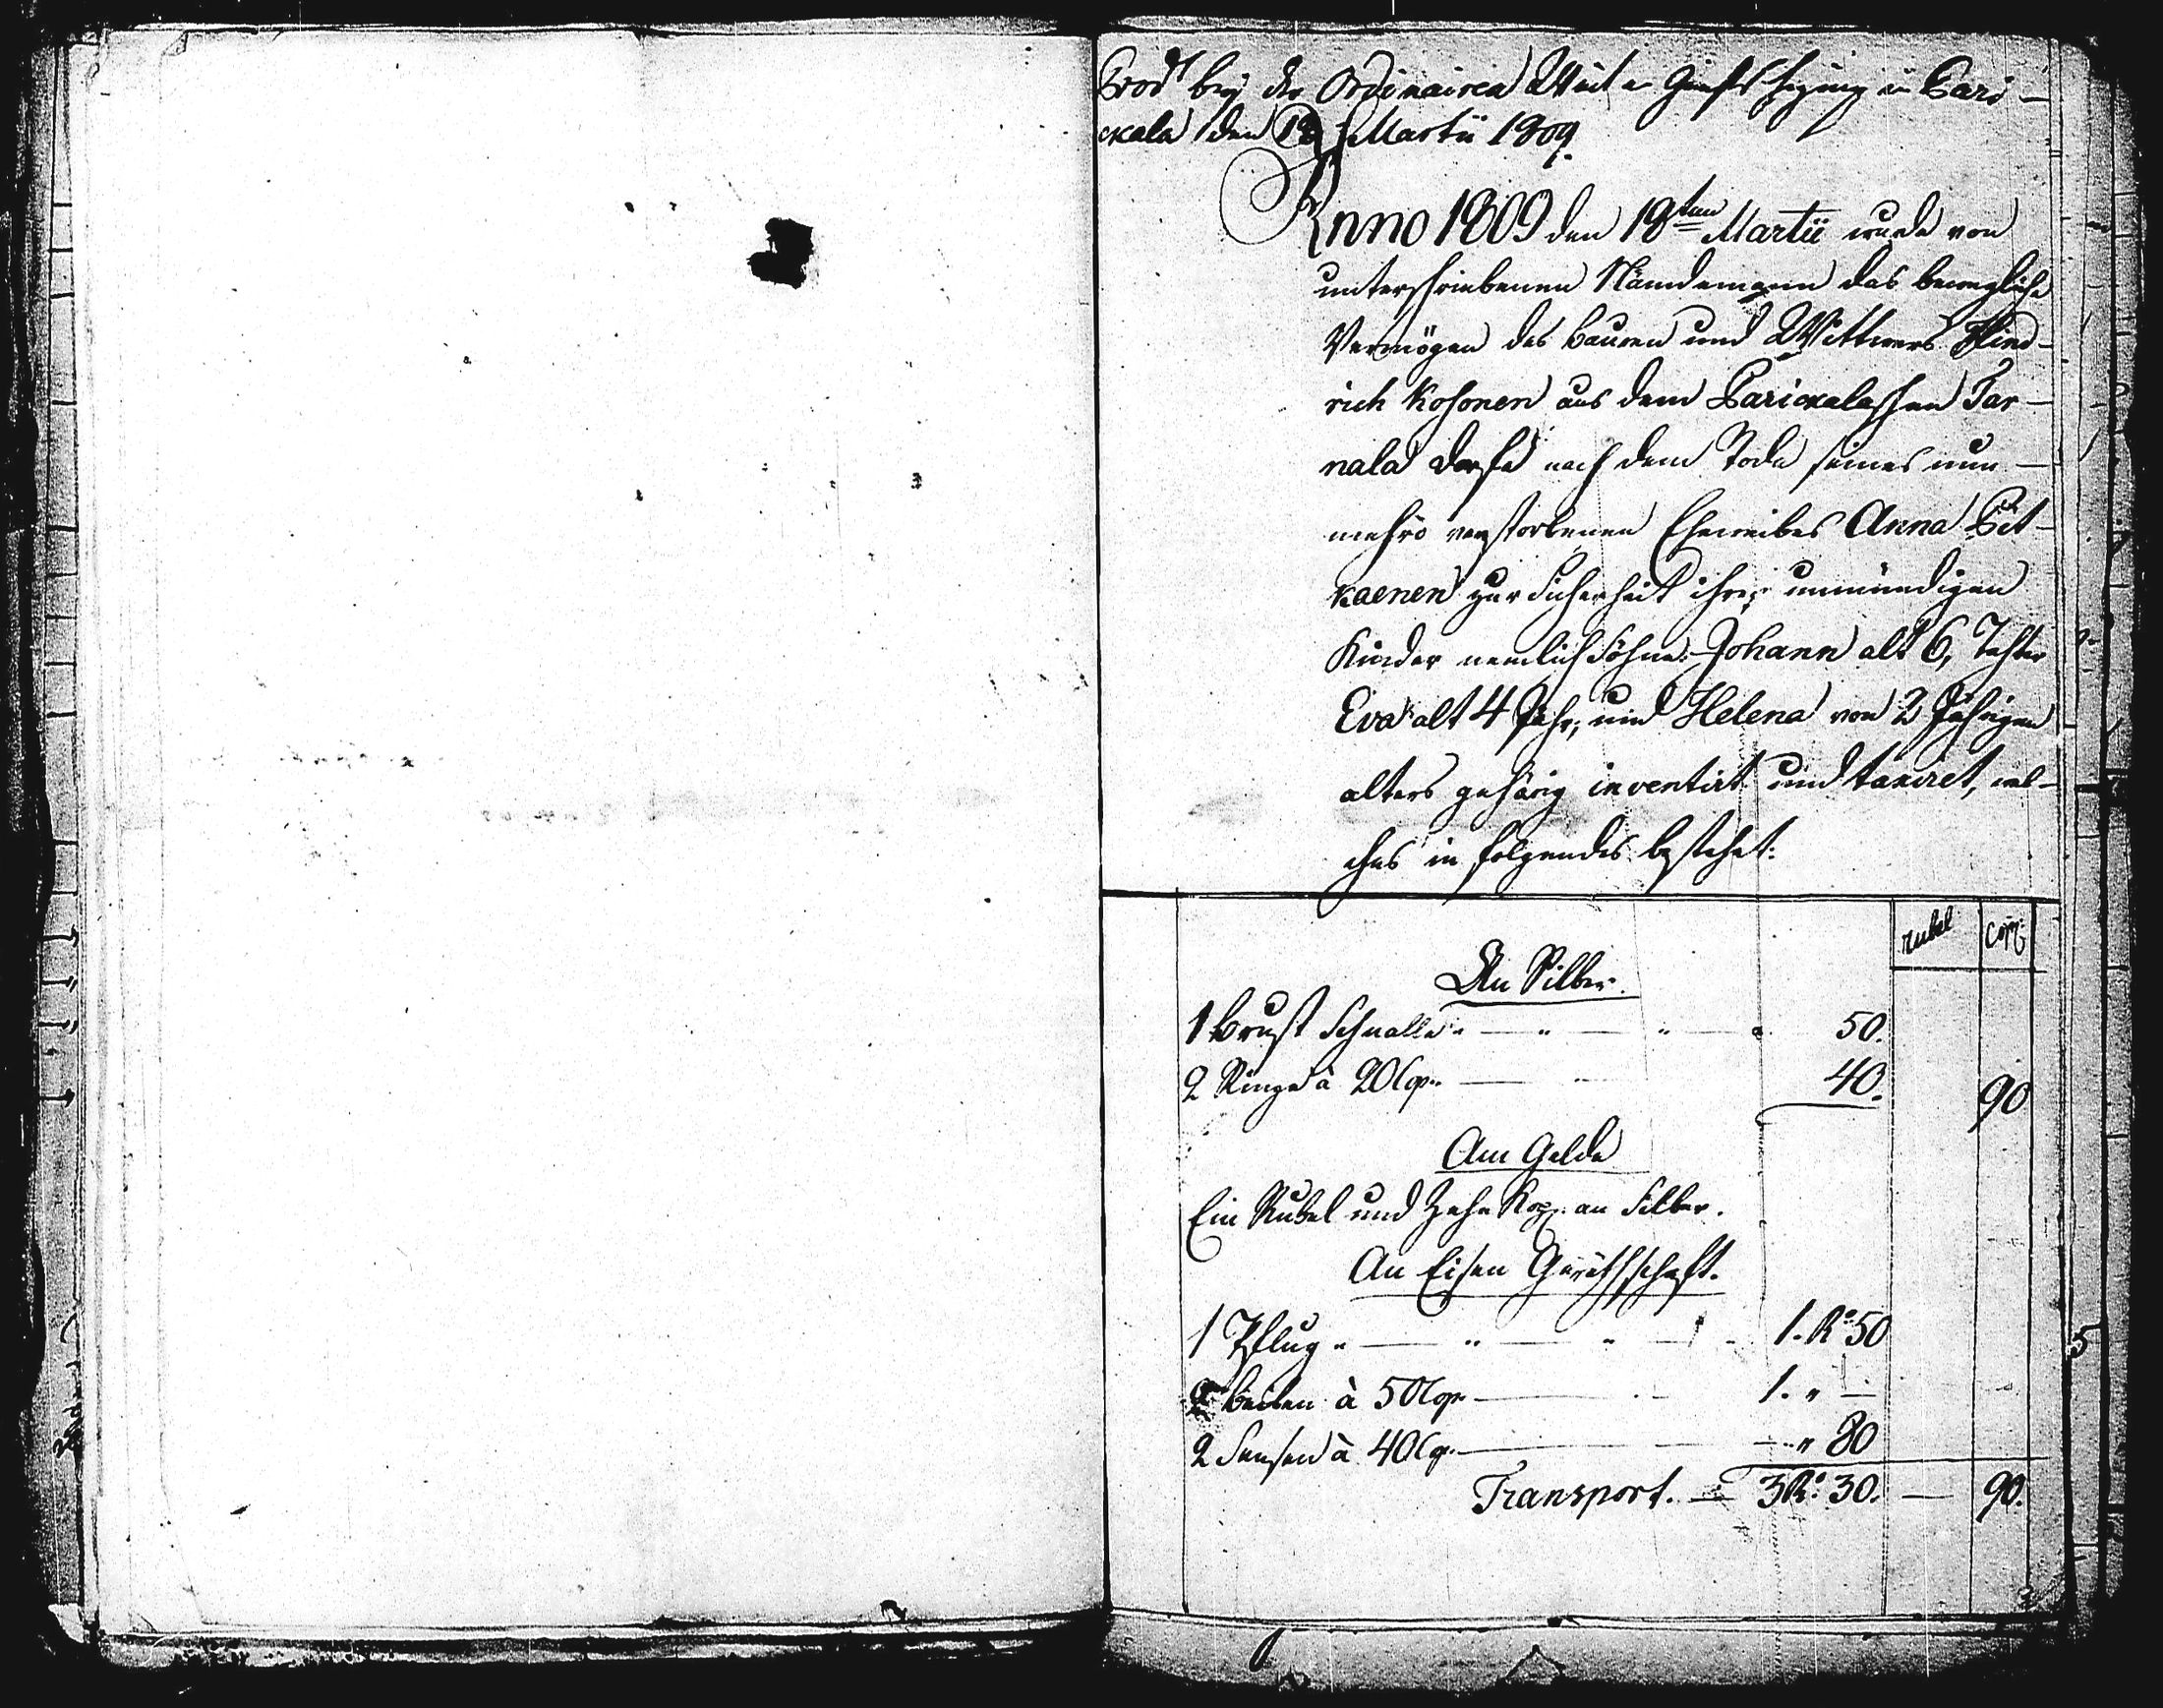 Prod<sup>t</sup> bey der Ordinairen Winter Gerichts Hegung in Pari-
ckala den 18 Martii 1809.
Anno 1809 den 18ten Martii wurde von
unterschriebenen Nämdemänn das bewegliche
Vermögen des Bauren und Wittwers Hind-
rich Kosonen aus dem Parickalaschen Tar-
nala Dorfe nach dem Tode seines nun-
mehro verstorbenen Eheweibes Anna Pit-
kaenen zur Sicherheit ihrer unmündigen
Kinder nemlich Söhne: Johann alt 6, Tochter
Eva alt 4 Jahr, und Helena von 2 Jährigen
alters gehörig inventirt und taxiret, wel-
ches in folgendes bestehet:
Rubel Cop:
An Silber.
1 Brust Schnalle 50.
2 Ringe à 20 Cop. 40. 90
Am Gelde
Ein Rubel und Zehn Kop. an Silber.
An Eisen Geräthschaft.
1 Pflug 1. R° 50
2 Beilen à 50 Cop. 1. " —
2 Sensen à 40 Cop. — " 80
Transport. — 3 R° 30. — 90.
5